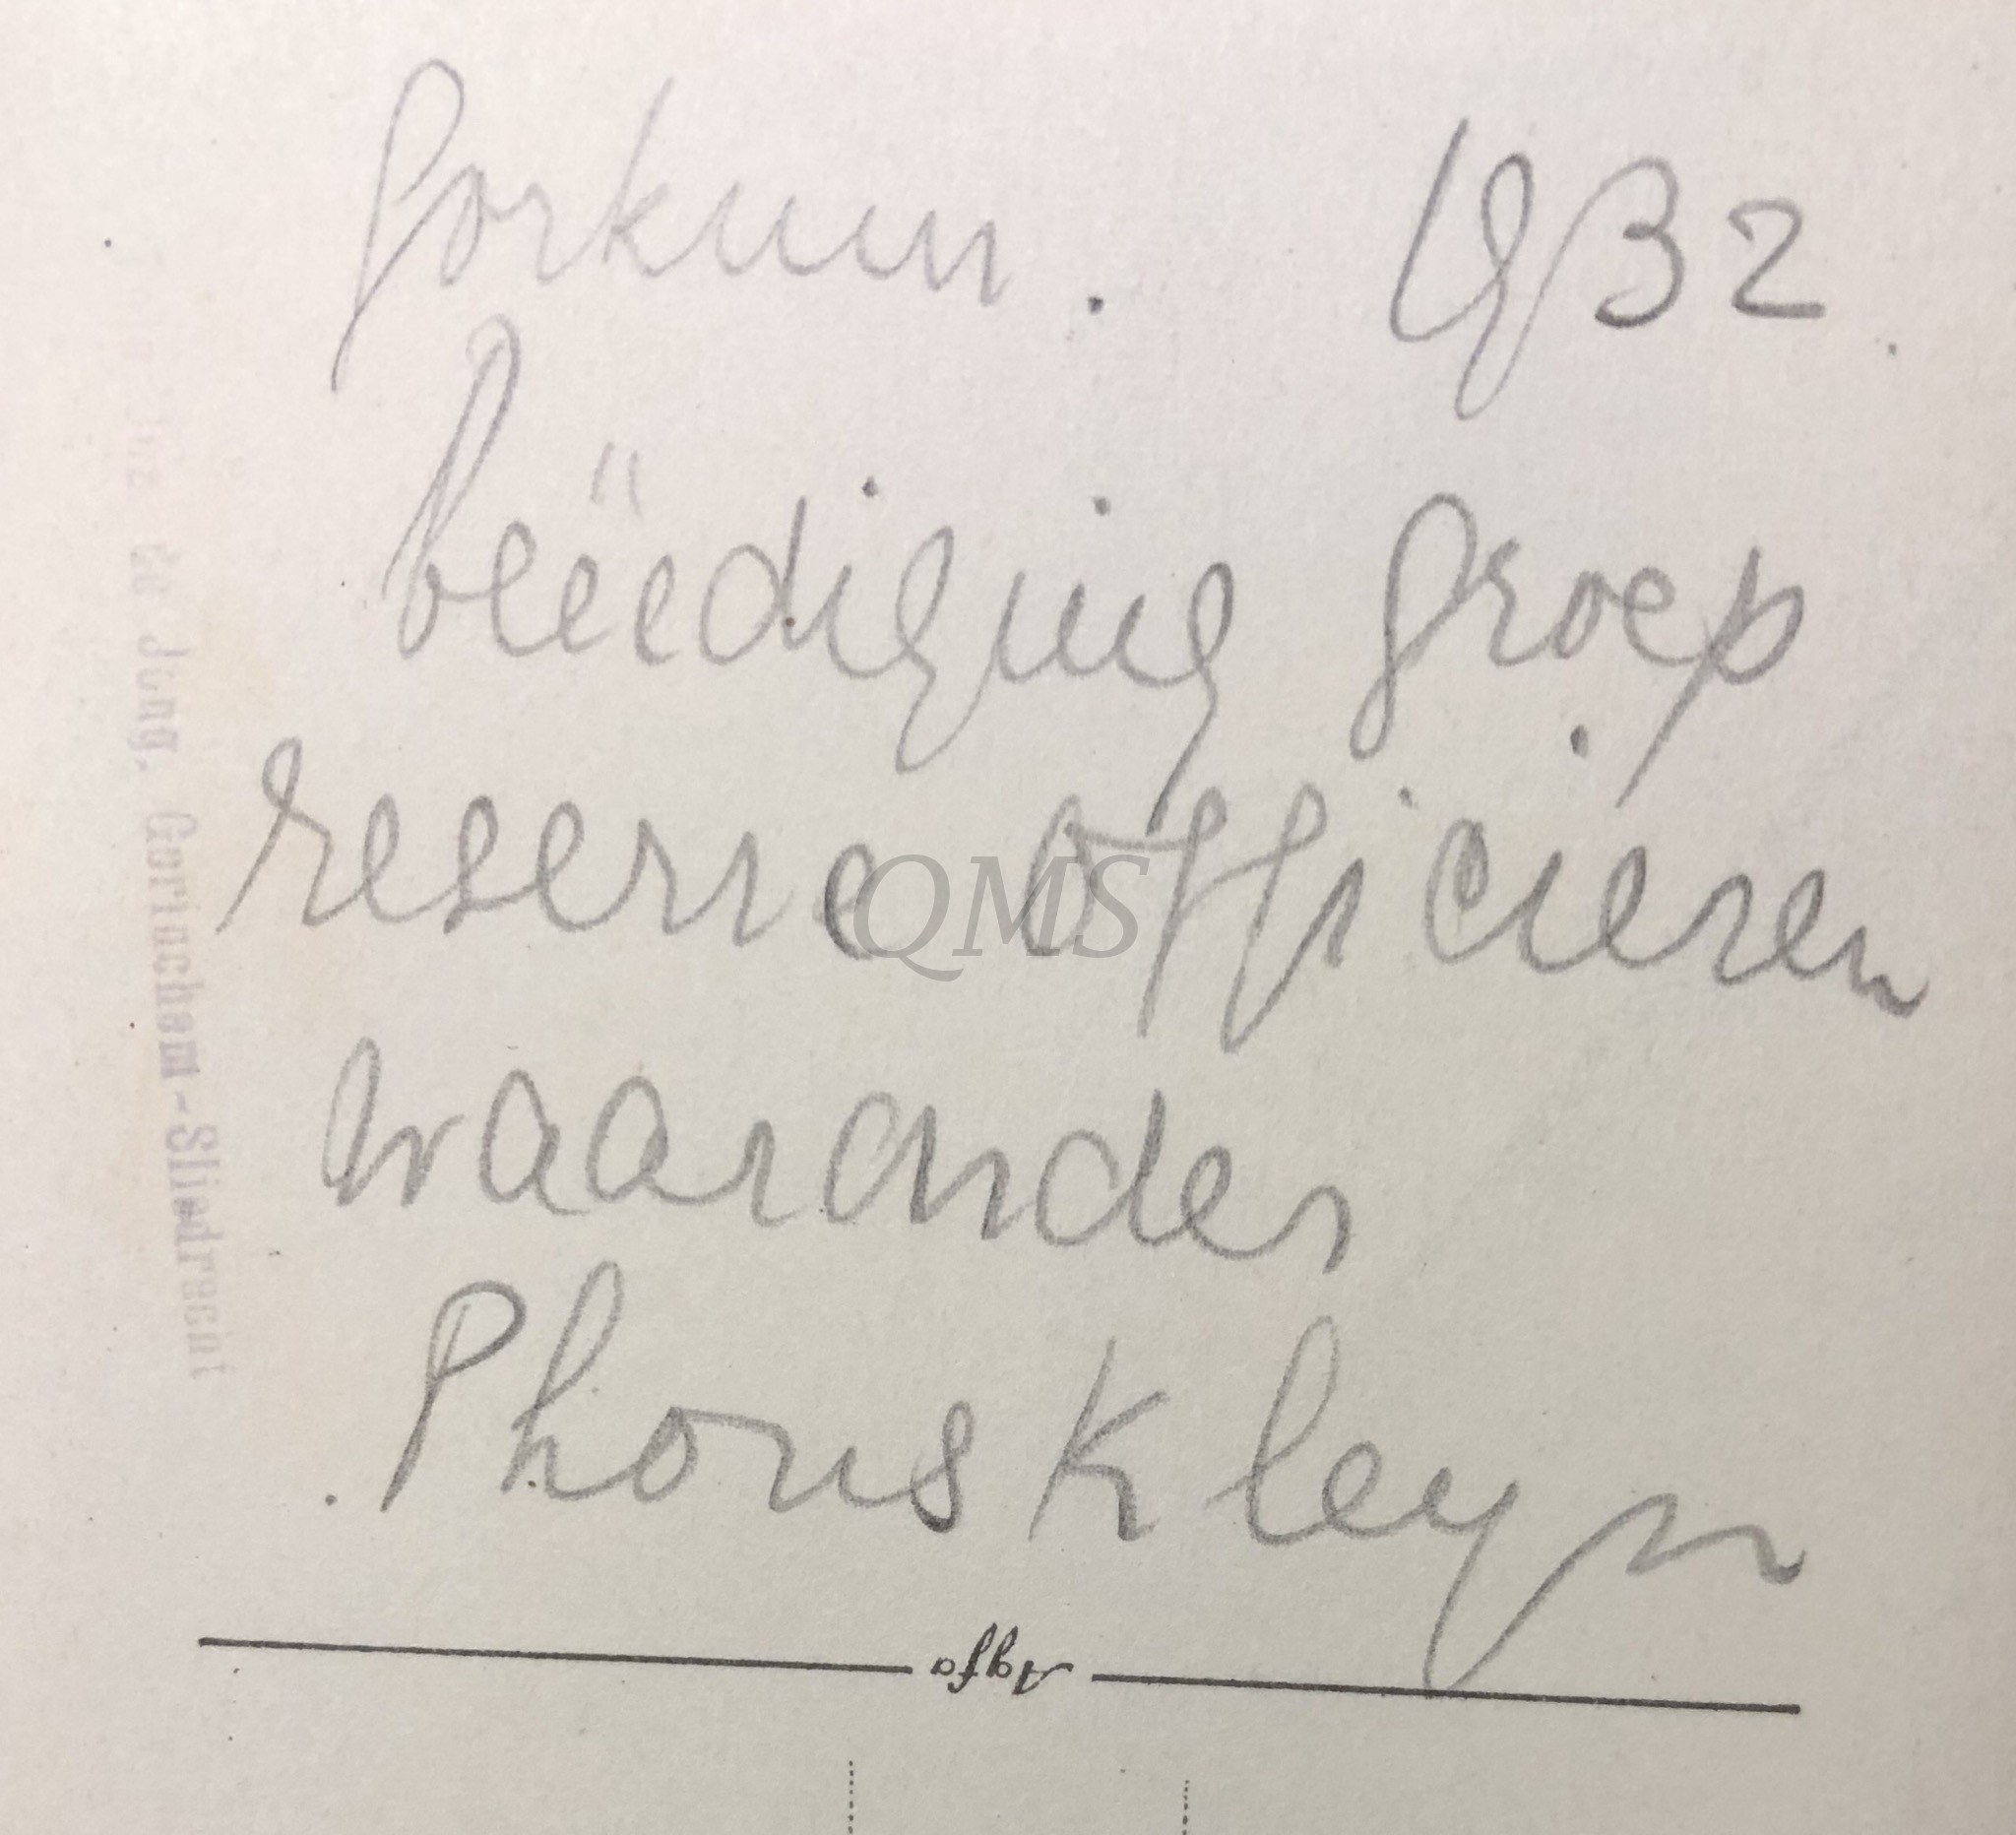 Gorkum. 1932.
beëediging groep
reserve officieren
waaronder
Phons Kleyn
Agfa
de Jong, Gorinchem-Sliedrecht
QMS